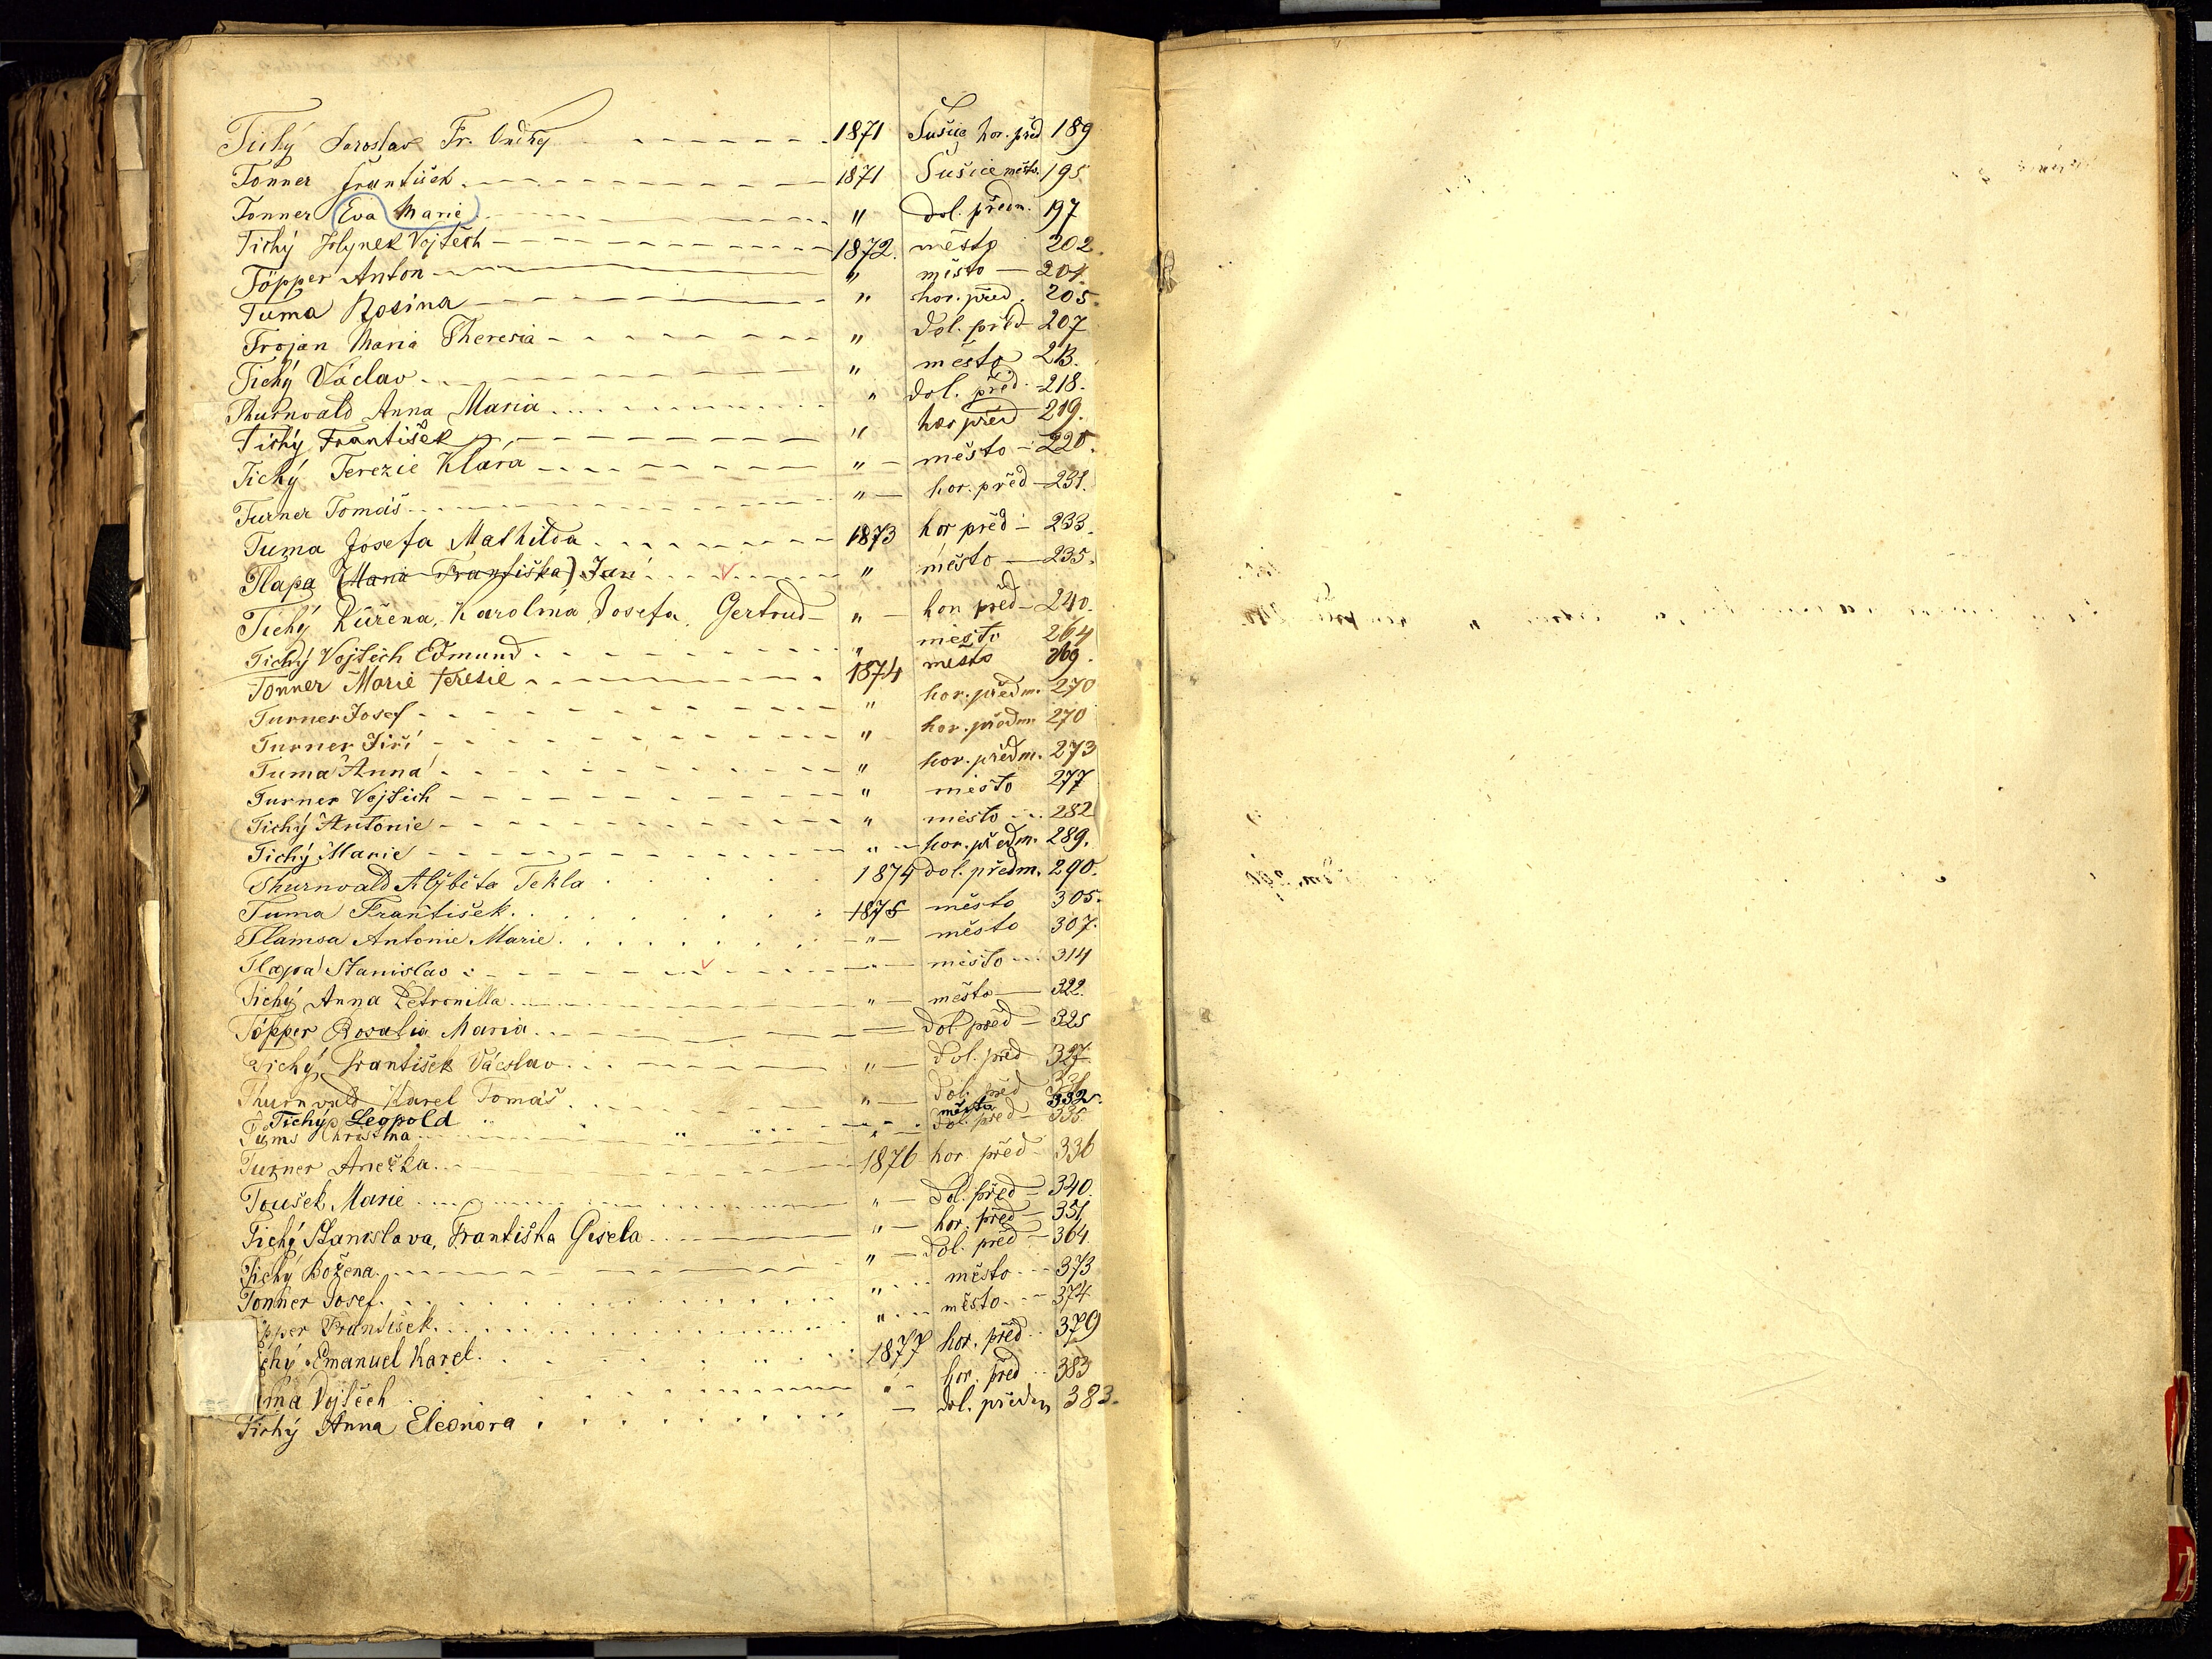 Tichý Jaroslav Fr. Ondřej 1871 Sušice hor. před 189
Tonner František 1871 Sušice město. 195
Tonner Eva Marie " dol. předm. 197
Tichý Hynek Vojtěch 1872. město 202.
Töpper Anton " město 204.
Tuma Rosina " hor. před. 205.
Trojan Maria Theresia " dol. před 207
Tichý Václav " město 213.
Thurnvald Anna Maria " dol. před. 218.
Tichý František " hor před 219.
Tichý Terezie Klára " město 220.
Turner Tomáš " hor. před 231.
Tuma Josefa Mathilda 1873 hor před 233.
Tlapa (Maria Františka) Jan " město 235.
Tichý Růžena, Karolina Josefa, Gertrud " hor. před 240.
Tichý Vojtěch Edmund " město 264
Tonner Marie Teresie 1874 město 269.
Turner Josef " hor. předm. 270
Turner Jiří " hor. předm. 270
Tuma Anna " hor. předm. 273
Turner Vojtěch " město 277
Tichý Antonie " město 282
Tichý Marie " hor. předm. 289.
Thurnvald Alžběta Tekla 1874 dol. předm. 290.
Tuma František 1875 město 305.
Tlamsa Antonie Marie " město 307.
Tlapa Stanislav " město 314
Tichý Anna Petronilla " město 322.
Töpper Rosalia Maria dol. před 325
Tichý František Václav " dol. před 327.
Thurnvald Karel Tomáš " dol. před
Tichý Leopold " města 332.
Christina " dol. před 335.
Turner Anežka 1876 hor. před 336
Toušek Marie " dol. před 340.
Tichý Stanislava, Františka Gisela " hor. před 351
Tichý Božena " dol. před 364.
Tonner Josef " město 373
pper František " město 374
chý Emanuel Karel 1877 hor. před. 379
ma Vojtěch " hor. před 383
Tichý Anna Eleonora dol. předm 383.